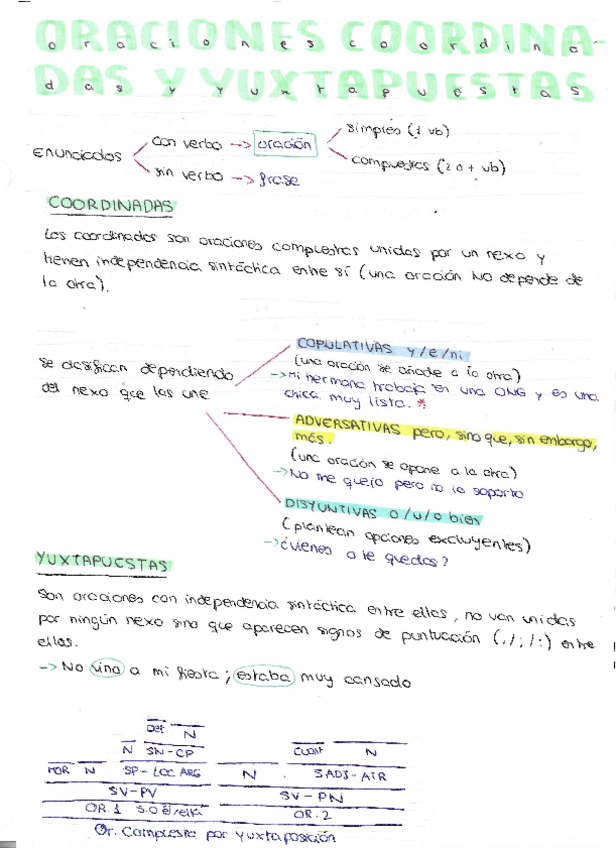 ORACIONES COORDINA-
DAS Y YUXTAPUESTAS
oraciones coordina
das y yuxtapuestas
Enunciados
con verbo -> oración
simples (1 vb)
compuestas (2 o + vb)
sin verbo -> frase
COORDINADAS
Las coordinadas son oraciones compuestas unidas por un nexo y
tienen independencia sintáctica entre sí (una oración NO depende de
la otra).
Se clasifican dependiendo
del nexo que las une
COPULATIVAS y/e/ni
(una oración se añade a la otra)
-> Mi hermana trabaja en una ONG y es una
chica muy lista. *
ADVERSATIVAS pero, sino que, sin embargo,
más.
(una oración se opone a la otra)
-> No me quejo pero no lo soporto
DISYUNTIVAS o/u/o bien
(plantean opciones excluyentes)
-> ¿vienes o te quedas?
YUXTAPUESTAS
Son oraciones con independencia sintáctica entre ellas, no van unidas
por ningún nexo sino que aparecen signos de puntuación (,/;/:) entre
ellas.
-> No vino a mi fiesta; estaba muy cansado
Det N
N SN-CP CUANT N
MOR N SP-LOC ARG N SADJ-ATR
SV-PV SV-PN
OR.1 S.O él/ella OR.2
Or. Compuesta por yuxtaposición